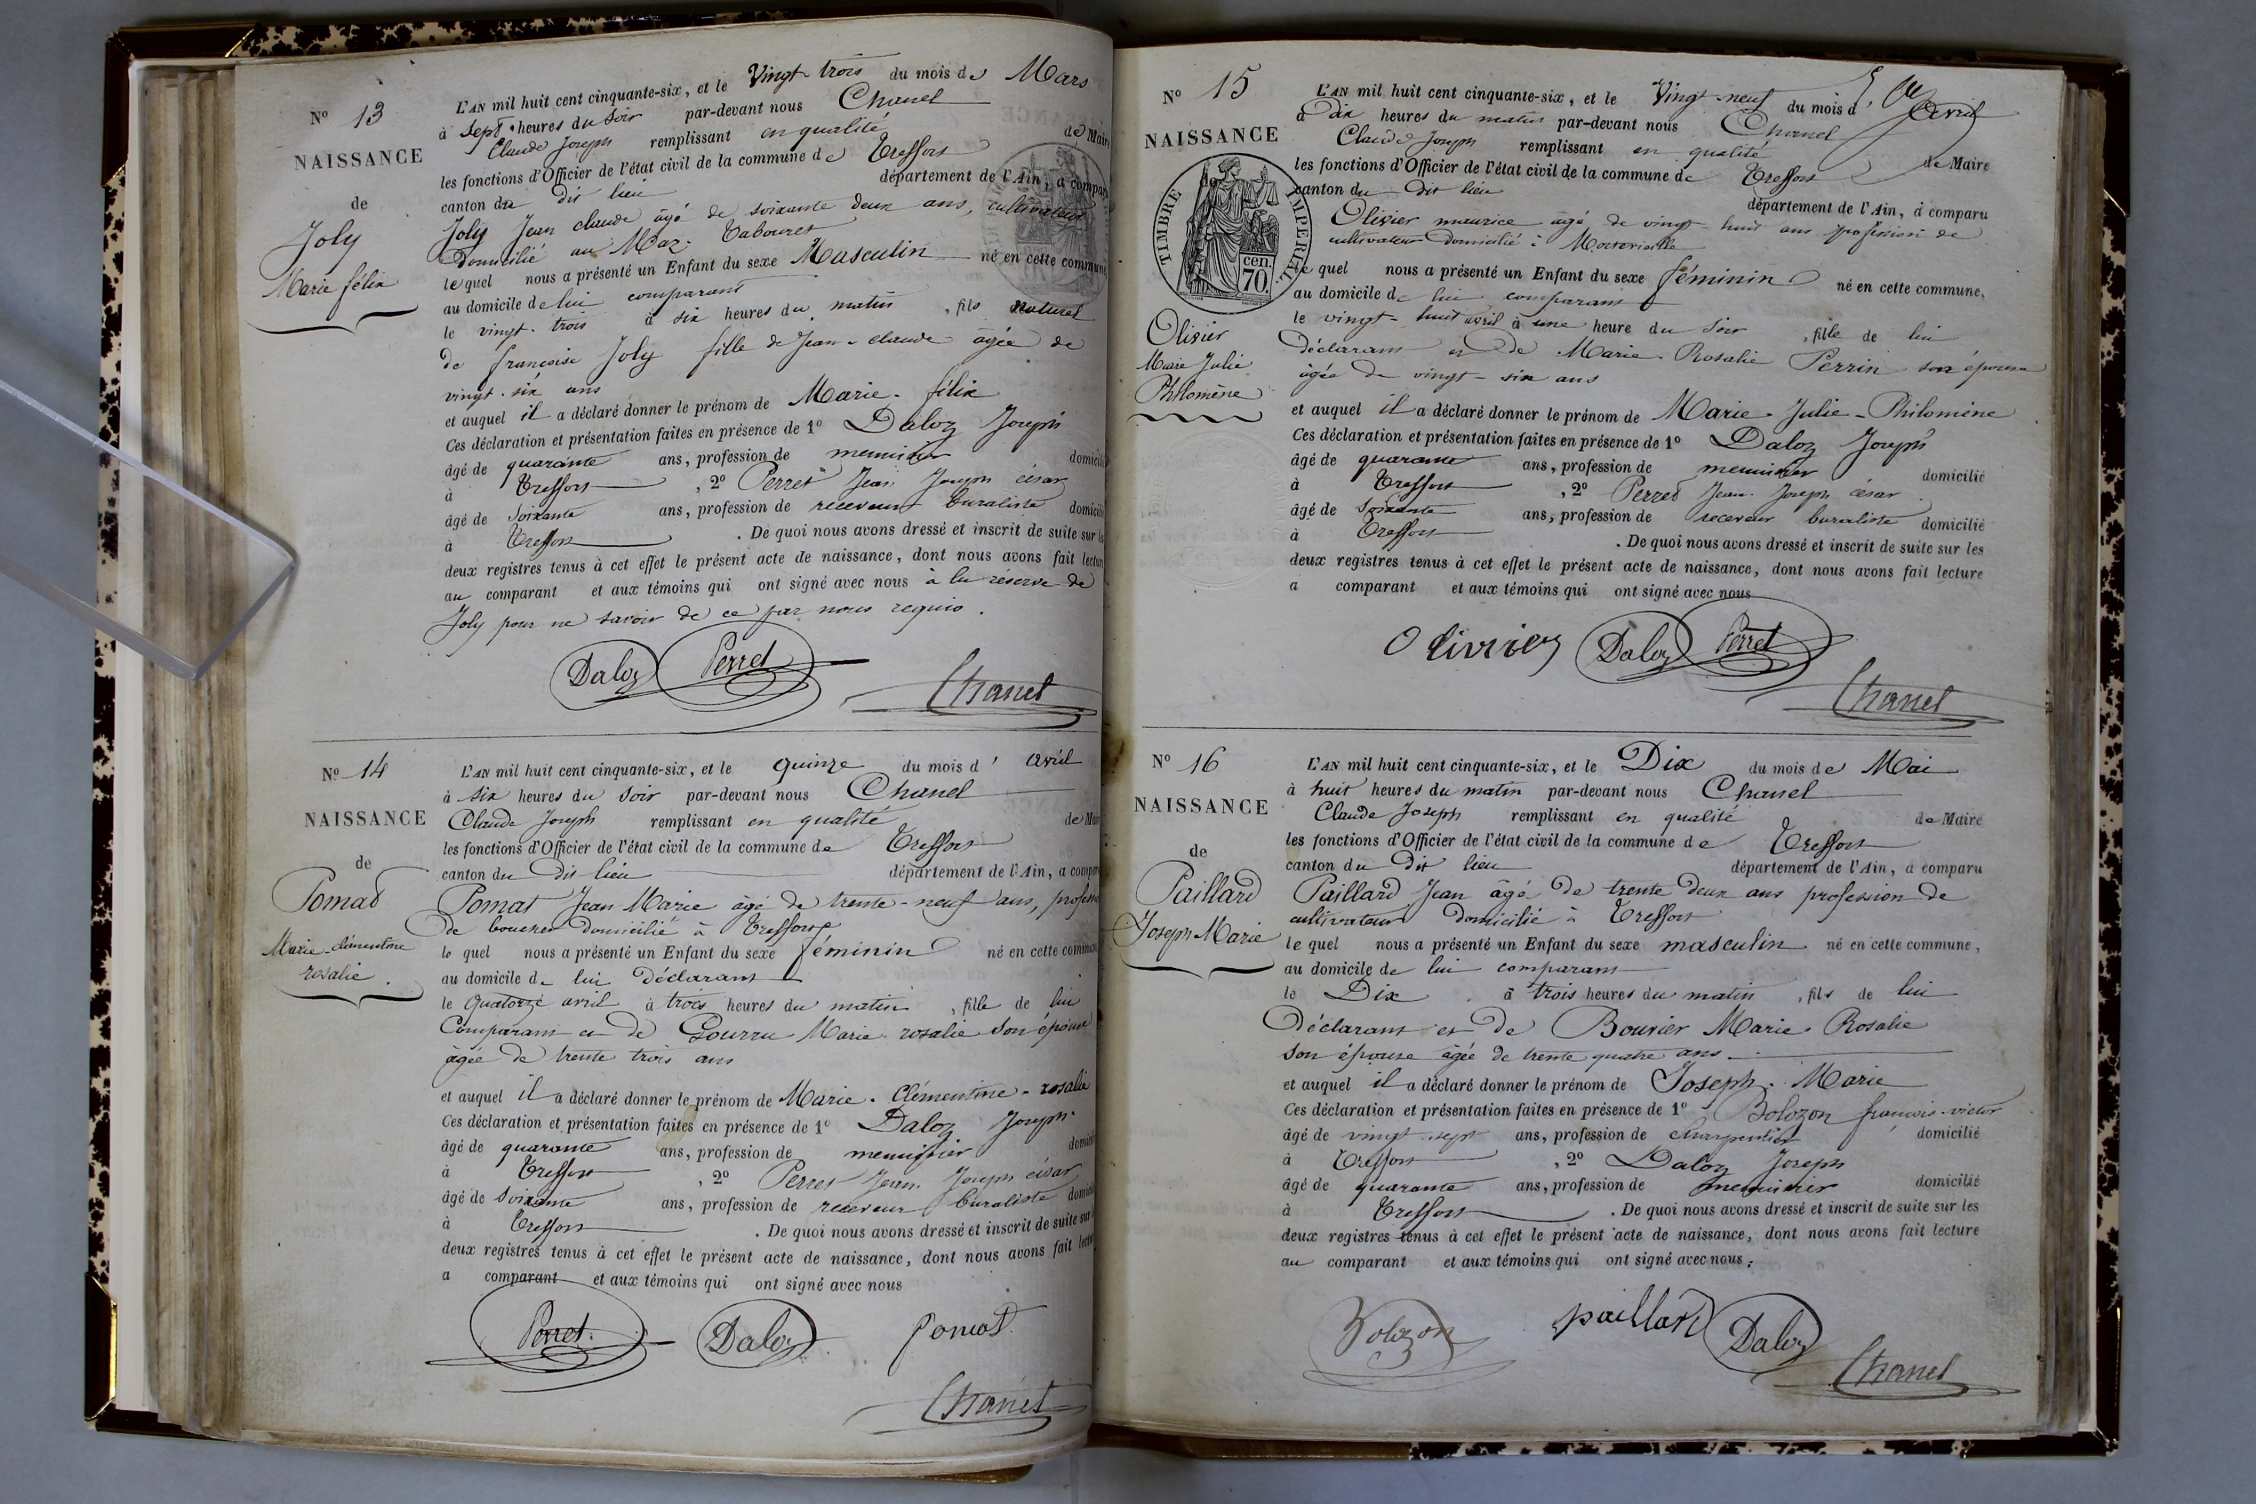 N° 13
NAISSANCE
de
Joly
Marie félix
L'AN mil huit cent cinquante-six, et le Vingt-trois du mois de Mars
à sept heures du soir par-devant nous Chanel
Claude Joseph remplissant en qualité de Maire
les fonctions d'Officier de l'état civil de la commune de Treffort
canton du dit lieu département de l'Ain, a comparu
Joly Jean claude âgé de soixante deux ans, cultivateur
domicilié au Maz. Tabouret
lequel nous a présenté un Enfant du sexe Masculin né en cette commune
au domicile de lui comparant
le vingt-trois à six heures du matin, fils naturel
de françoise Joly fille de Jean-claude âgée de
vingt-six ans
et auquel il a déclaré donner le prénom de Marie-félix
Ces déclaration et présentation faites en présence de 1° Daloz Joseph
âgé de quarante ans, profession de menuisier domicilié
à Treffort, 2° Perret Jean Joseph césar
âgé de soixante ans, profession de receveur buraliste domicilié
à Treffort. De quoi nous avons dressé et inscrit de suite sur les
deux registres tenus à cet effet le présent acte de naissance, dont nous avons fait lecture
au comparant et aux témoins qui ont signé avec nous à la réserve de
Joly pour ne savoir de ce par nous requis.
Daloz Perret
Chanel
N° 14
NAISSANCE
de
Pomat
Marie-clémentine
rosalie.
L'AN mil huit cent cinquante-six, et le quinze du mois d'avril
à six heures du soir par-devant nous Chanel
Claude Joseph remplissant en qualité de Maire
les fonctions d'Officier de l'état civil de la commune de Treffort
canton du dit lieu département de l'Ain, a comparu
Pomat Jean Marie âgé de trente-neuf ans, profession
de boucher domicilié à Treffort
le quel nous a présenté un Enfant du sexe féminin né en cette commune
au domicile de lui déclarant
le quatorze avril à trois heures du matin, fille de lui
Comparant et de Gourru Marie rosalie son épouse
âgée de trente trois ans
et auquel il a déclaré donner le prénom de Marie-Clémentine-rosalie
Ces déclaration et présentation faites en présence de 1° Daloz Joseph
âgé de quarante ans, profession de menuisier domicilié
à Treffort, 2° Perret Jean Joseph césar
âgé de soixante ans, profession de receveur buraliste domicilié
à Treffort. De quoi nous avons dressé et inscrit de suite sur
deux registres tenus à cet effet le présent acte de naissance, dont nous avons fait lecture
a comparant et aux témoins qui ont signé avec nous
Perret. Daloz Pomat
Chanel
N° 15
NAISSANCE
de
TIMBRE IMPERIAL
cen. 70.
Olivier
Marie Julie
Philomène
L'AN mil huit cent cinquante-six, et le Vingt-neuf du mois d'Avril
à dix heures du matin par-devant nous Chanel
Claude Joseph remplissant en qualité de Maire
les fonctions d'Officier de l'état civil de la commune de Treffort
canton du dit lieu département de l'Ain, a comparu
Olivier maurice âgé de vingt-huit ans profession de
cultivateur domicilié à
le quel nous a présenté un Enfant du sexe féminin né en cette commune,
au domicile de lui comparant
le vingt-huit avril à une heure du soir, fille de lui
déclarant et de Marie-Rosalie Perrin son épouse
âgée de vingt-six ans
et auquel il a déclaré donner le prénom de Marie-Julie-Philomène
Ces déclaration et présentation faites en présence de 1° Daloz Joseph
âgé de quarante ans, profession de menuisier domicilié
à Treffort, 2° Perret Jean Joseph césar
âgé de soixante ans, profession de receveur buraliste domicilié
à Treffort. De quoi nous avons dressé et inscrit de suite sur les
deux registres tenus à cet effet le présent acte de naissance, dont nous avons fait lecture
a comparant et aux témoins qui ont signé avec nous
Olivier Daloz Perret
Chanel
N° 16
NAISSANCE
de
Paillard
Joseph Marie
L'AN mil huit cent cinquante-six, et le Dix du mois de Mai
à huit heures du matin par-devant nous Chanel
Claude Joseph remplissant en qualité de Maire
les fonctions d'Officier de l'état civil de la commune de Treffort
canton du dit lieu département de l'Ain, a comparu
Paillard Jean âgé de trente deux ans profession de
cultivateur domicilié à Treffort
le quel nous a présenté un Enfant du sexe masculin né en cette commune,
au domicile de lui comparant
le Dix à trois heures du matin, fils de lui
Déclarant et de Bouvier Marie Rosalie
son épouse âgée de trente quatre ans.
et auquel il a déclaré donner le prénom de Joseph-Marie
Ces déclaration et présentation faites en présence de 1° Bolozon françois-victor
âgé de vingt-sept ans, profession de charpentier domicilié
à Treffort, 2° Daloz Joseph
âgé de quarante ans, profession de menuisier domicilié
à Treffort. De quoi nous avons dressé et inscrit de suite sur les
deux registres tenus à cet effet le présent acte de naissance, dont nous avons fait lecture
au comparant et aux témoins qui ont signé avec nous.
Bolozon paillard Daloz
Chanel